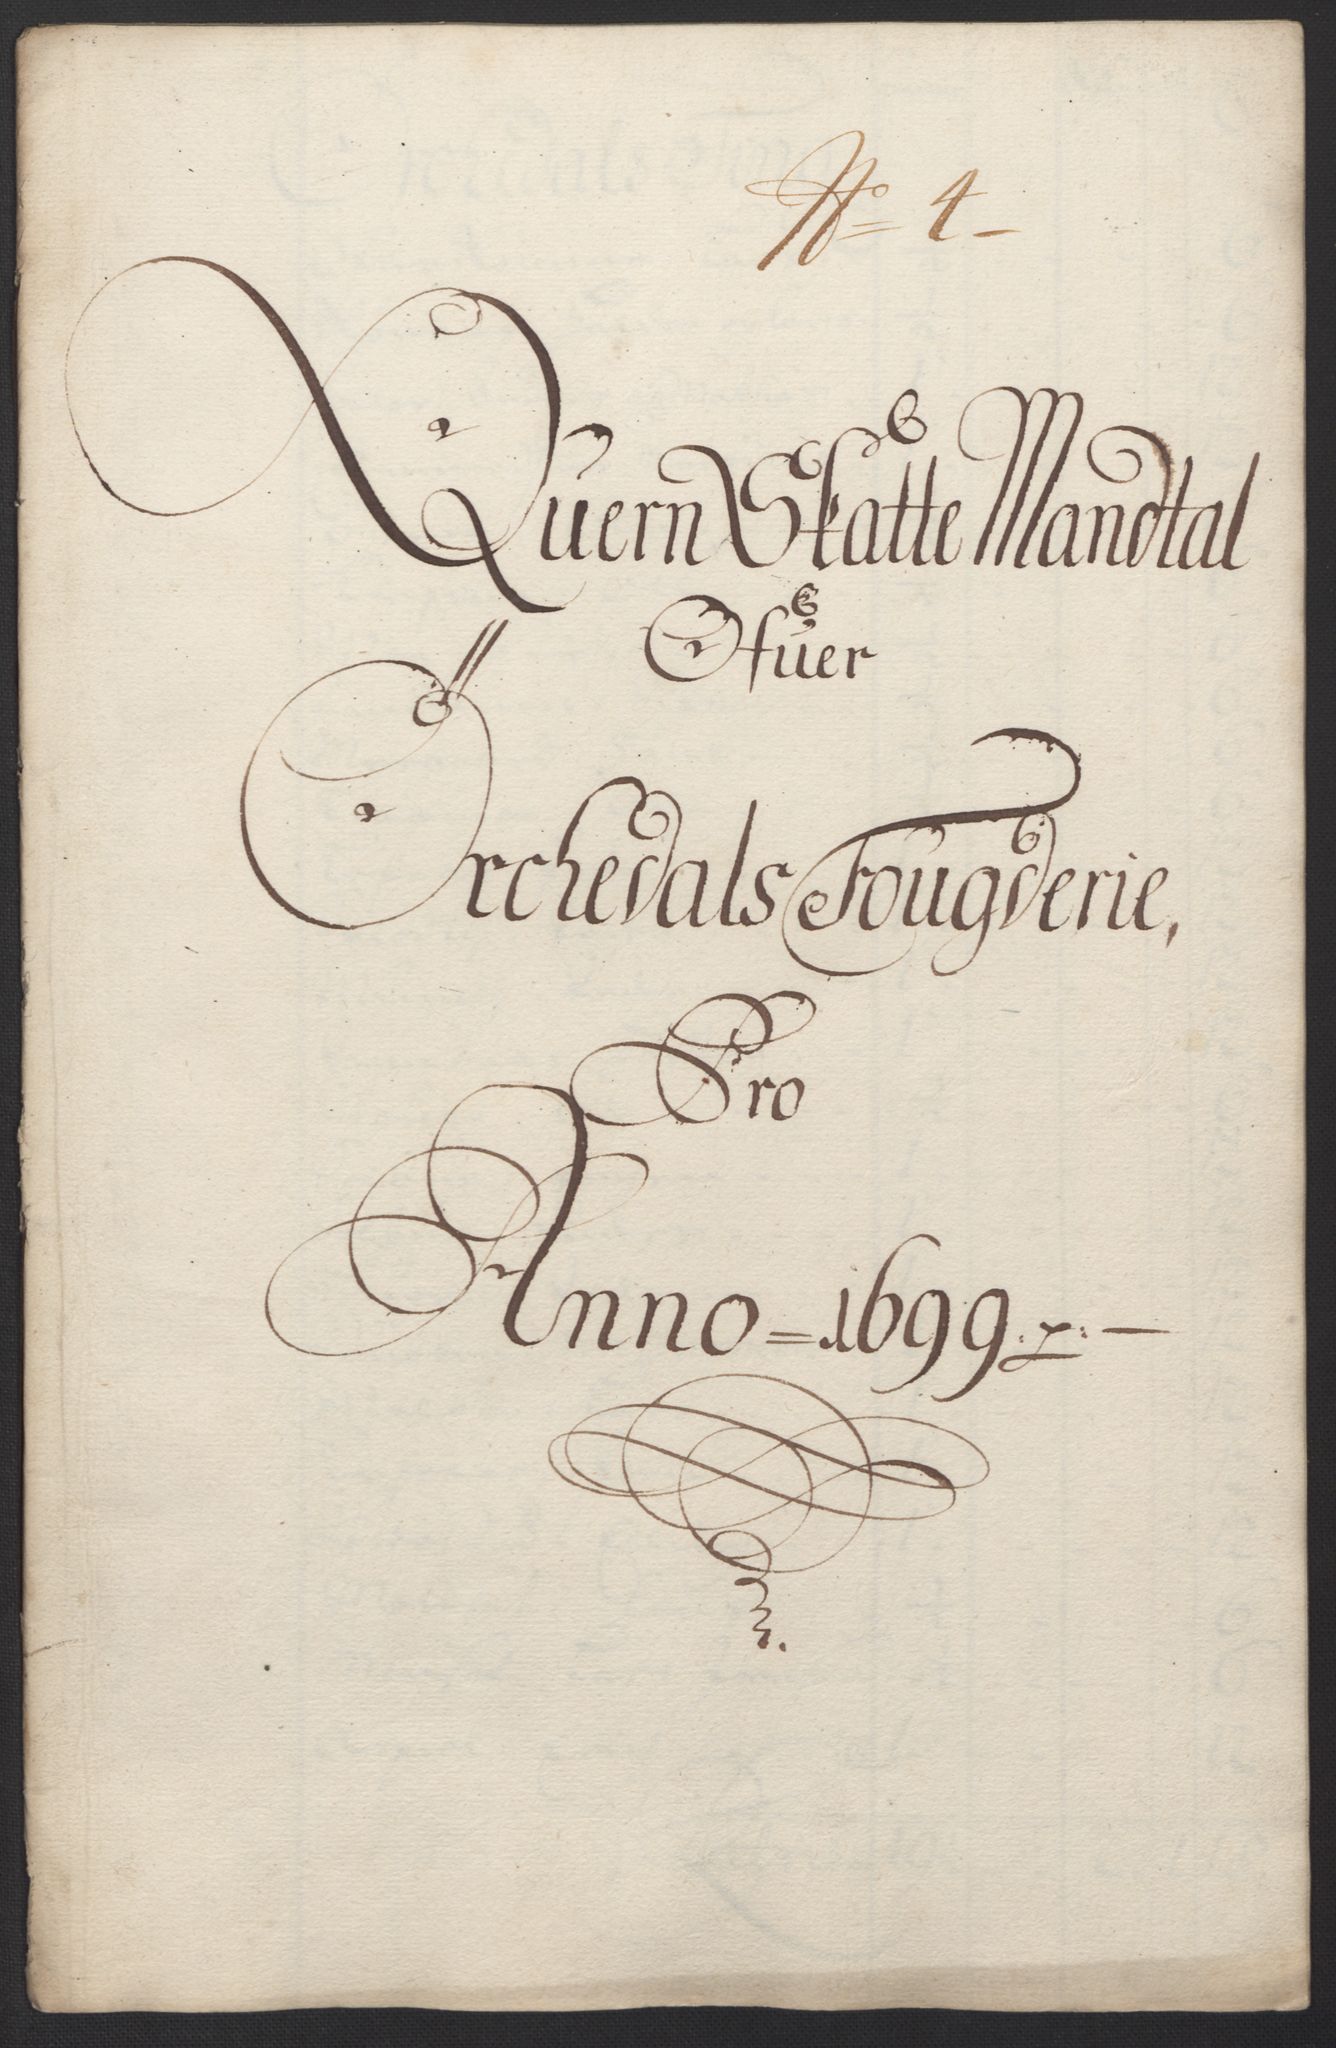 No 4
Quern Skatte Mandtal
Ofuer
Orchedals Fougderie,
Pro
Anno 1699